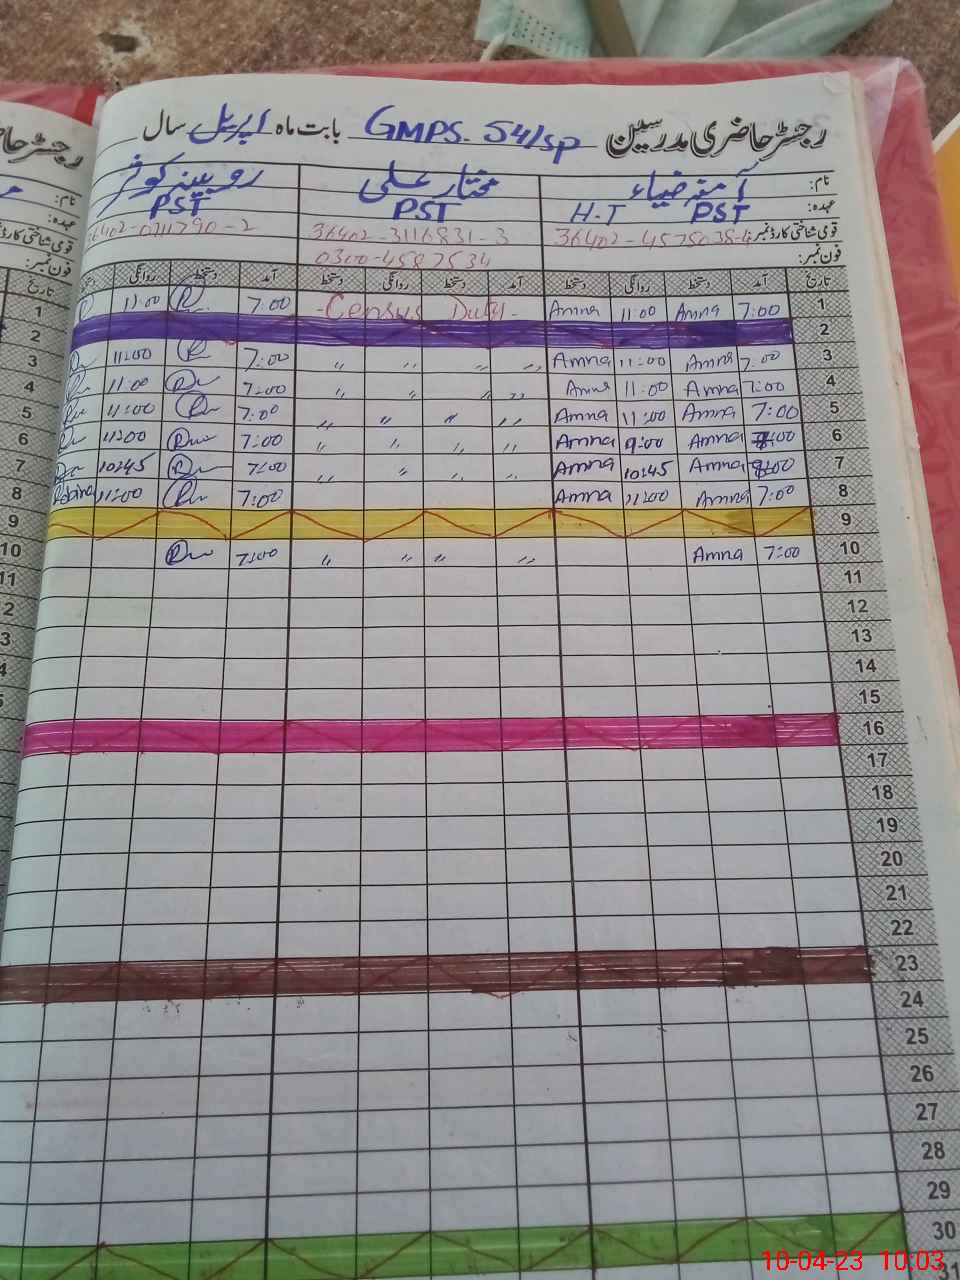 رجسٹر حاضری مدرسین GMPS. 54/SP بابت ماہ اپریل سال
نام: آمنہ ضیاء مختار علی روبینہ کوثر
عہدہ: PST H-T PST PST
قومی شناختی کارڈ نمبر 36402-3116831-3
فون نمبر: 0300-4587534
تاریخ آمد دستخط روانگی دستخط آمد دستخط روانگی دستخط آمد دستخط روانگی دستخط
1 7:00 Amna 11:00 Amna -Census Duty- 7:00 11:00
2
3 7:00 Amna 11:00 Amna " " " " 7:00 11:00
4 7:00 Amna 11:00 Amna " " " " 7:00 11:00
5 7:00 Amna 11:00 Amna " " " " 7:00 11:00
6 7:00 Amna 9:00 Amna " " " " 7:00 11:00
7 8:00 Amna 10:45 Amna " " " " 7:00 10:45
8 7:00 Amna 11:00 Amna 7:00 11:00 Robina
9
10 7:00 Amna " " " " 7:00
11
12
13
14
15
16
17
18
19
20
21
22
23
24
25
26
27
28
29
30
31
10-04-23 10:03